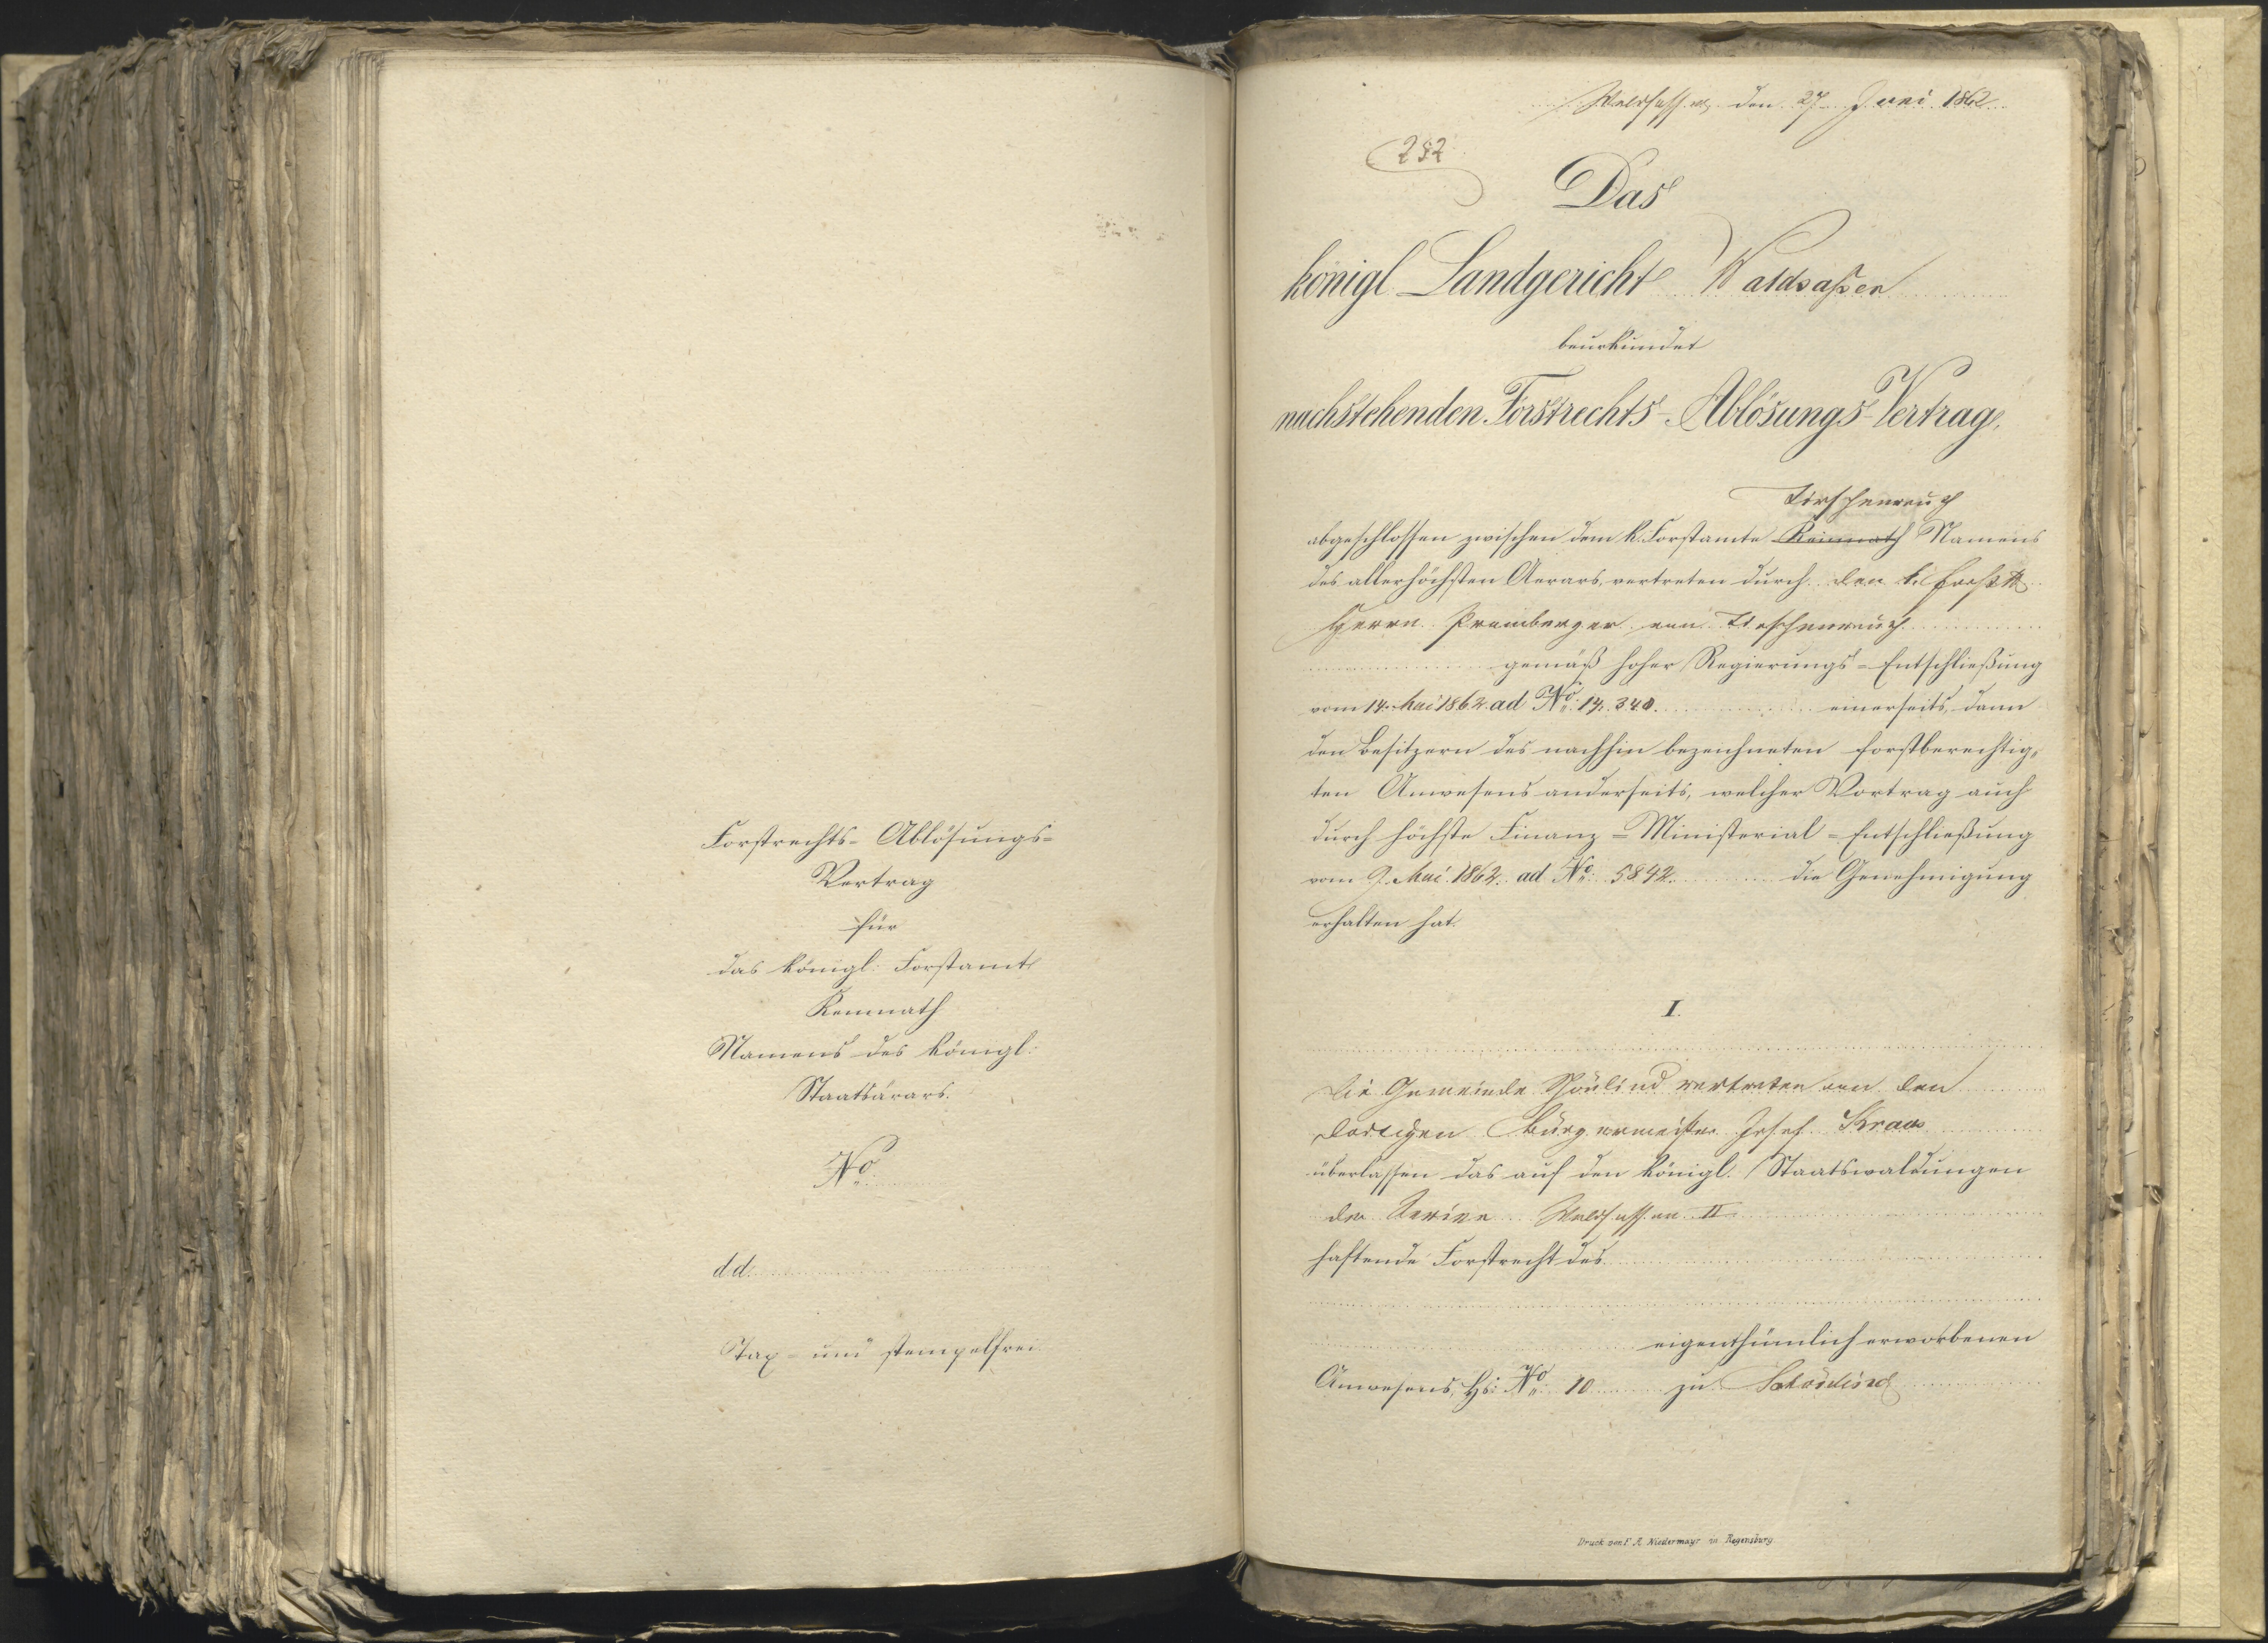 Forstrechts- Ablösungs-
Vertrag
für
das königl: Forstamt
Kemnath
Namens des königl:
Staatsärars.
No
d.d.
Tax- und stempelfrei
Waldsassen, den 27. Juni 1862
282
Das
königl. Landgericht Waldsaßen
beurkundet
nachstehenden Forstrechts-Ablösungs-Vertrag,
Tirschenreuth
abgeschlossen zwischen dem k. Forstamte Kemnath Namens
des allerhöchsten Aerars, vertreten durch den k.
Herrn von Tirschenreuth
gemäß hoher Regierungs-Entschließung
vom 14. Mai 1862 ad No. 14,340. einerseits, dann
den Besitzern des nachhin bezeichneten forstberechtig-
ten Anwesens anderseits, welcher Vertrag auch
durch höchste Finanz-Ministerial-Entschließung
vom 9. Mai 1862. ad No. 5842. die Genehmigung
erhalten hat.
I.
Die Gemeinde Schönlind vertreten von dem
dortigen Bürgermeister Josef Kraus
überlassen das auf den königl. Staatswaldungen
des Revier Waldsassen II
haftende Forstrecht des
eigenthümlich erworbenen
Anwesens, Hs: No. 10 zu Schönlind
Druck von F. A. Niedermayr in Regensburg